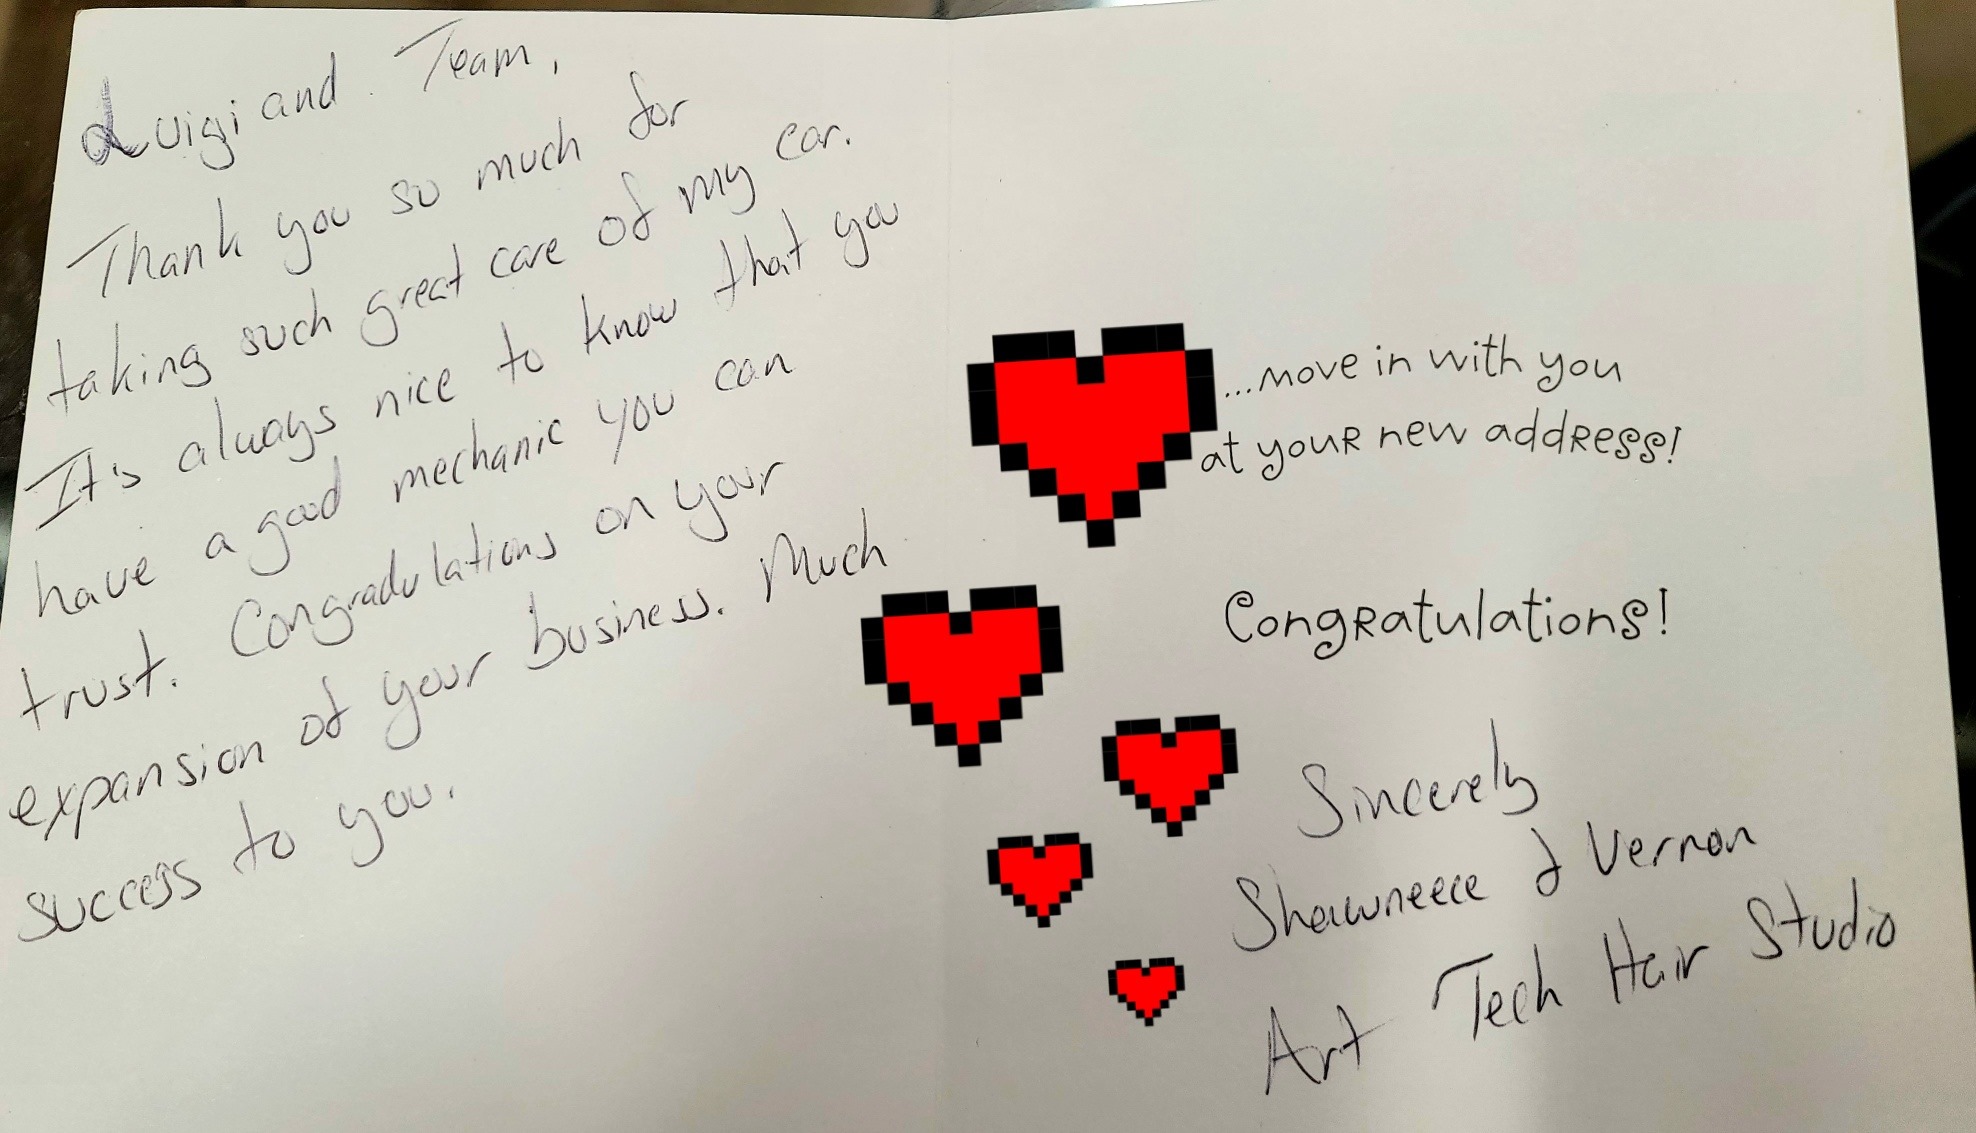 Luigi and Team,
Thank you so much for
taking such great care of my car.
It's always nice to know that you
have a good mechanic you can
trust. Congradulations on your
expansion of your business. Much
success to you.
...move in with you
at your new address!
Congratulations!
Sincerely
Shawneece & Vernon
Art Tech Hair Studio